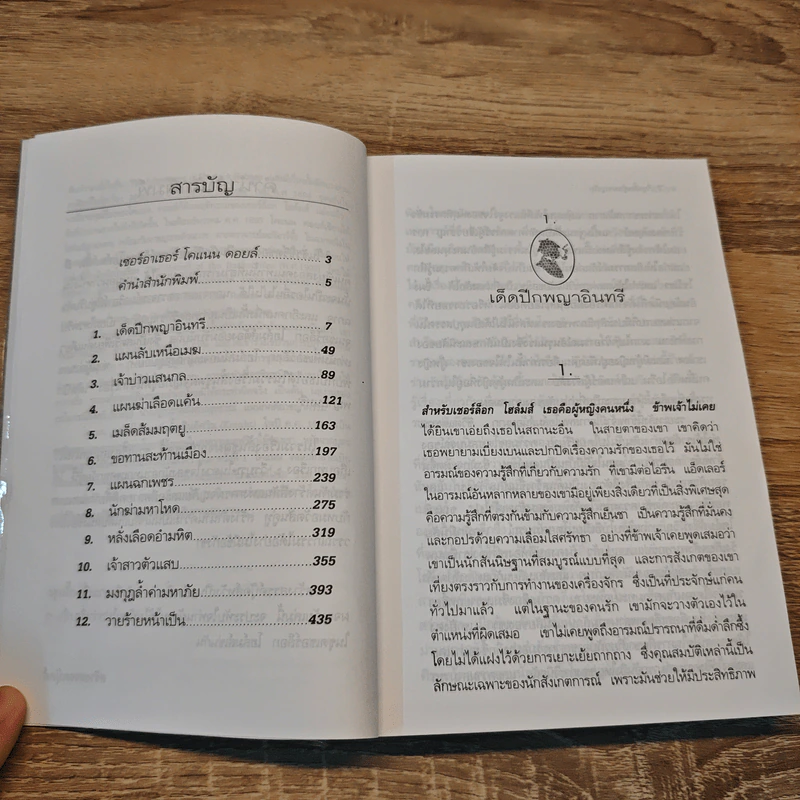 สารบัญ
เซอร์อาเธอร์ โคแนน ดอยล์ 3
คำนำสำนักพิมพ์ 5
1. เด็ดปีกพญาอินทรี 7
2. แผนลับเหนือเมฆ 49
3. เจ้าบ่าวแสนกล 89
4. แผนฆ่าเลือดแค้น 121
5. เมล็ดส้มมฤตยู 163
6. ขอทานสะท้านเมือง 197
7. แผนฉกเพชร 239
8. นักฆ่ามหาโหด 275
9. หลั่งเลือดอำมหิต 319
10. เจ้าสาวตัวแสบ 355
11. มงกุฎล้ำค่ามหาภัย 393
12. วายร้ายหน้าเป็น 435
1.
เด็ดปีกพญาอินทรี
1.
สำหรับเชอร์ล็อก โฮล์มส์ เธอคือผู้หญิงคนหนึ่ง ข้าพเจ้าไม่เคย
ได้ยินเขาเอ่ยถึงเธอในสถานะอื่น ในสายตาของเขา เขาคิดว่า
เธอพยายามเบี่ยงเบนและปกปิดเรื่องความรักของเธอไว้ มันไม่ใช่
อารมณ์ของความรู้สึกที่เกี่ยวกับความรัก ที่เขามีต่อไอรีน แอ็ดเลอร์
ในอารมณ์อันหลากหลายของเขามีอยู่เพียงสิ่งเดียวที่เป็นสิ่งพิเศษสุด
คือความรู้สึกที่ตรงกันข้ามกับความรู้สึกเย็นชา เป็นความรู้สึกที่มั่นคง
และกอปรด้วยความเลื่อมใสศรัทธา อย่างที่ข้าพเจ้าเคยพูดเสมอว่า
เขาเป็นนักสันนิษฐานที่สมบูรณ์แบบที่สุด และการสังเกตของเขา
เที่ยงตรงราวกับการทำงานของเครื่องจักร ซึ่งเป็นที่ประจักษ์แก่คน
ทั่วไปมาแล้ว แต่ในฐานะของคนรัก เขามักจะวางตัวเองไว้ใน
ตำแหน่งที่ผิดเสมอ เขาไม่เคยพูดถึงอารมณ์ปรารถนาที่ดื่มด่ำลึกซึ้ง
โดยไม่ได้แฝงไว้ด้วยการเยาะเย้ยถากถาง ซึ่งคุณสมบัติเหล่านี้เป็น
ลักษณะเฉพาะของนักสังเกตการณ์ เพราะมันช่วยให้มีประสิทธิภาพ